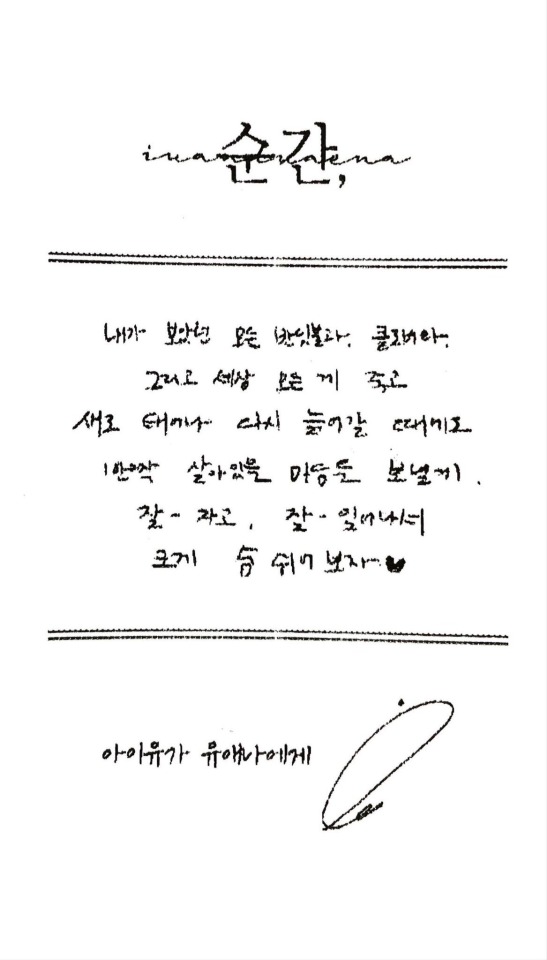 순간,
내가 보았던 모든 반딧불과, 클로버와,
그리고 세상 모든 게 죽고
새로 태어나 다시 늙어갈 때에도
살아있을 마음을 보낼게.
잘~ 자고, 잘~ 일어나서
크게 숨 쉬어 보자♥
아이유가 유애나에게